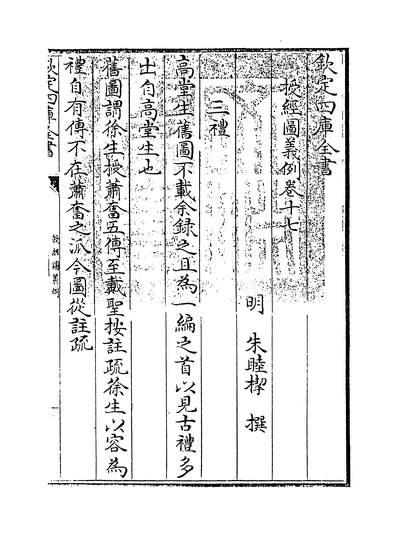 欽定四庫全書
授經圖義例卷十七
明 朱睦㮮 撰
三禮
髙堂生舊圖不載余録之且為一編之首以見古禮多
出自髙堂生也
舊圖謂徐生授蕭奮五傳至戴聖按註疏徐生以容為
禮自有傳不在蕭奮之派今圖從註疏
欽定四庫全書
授經圖義例